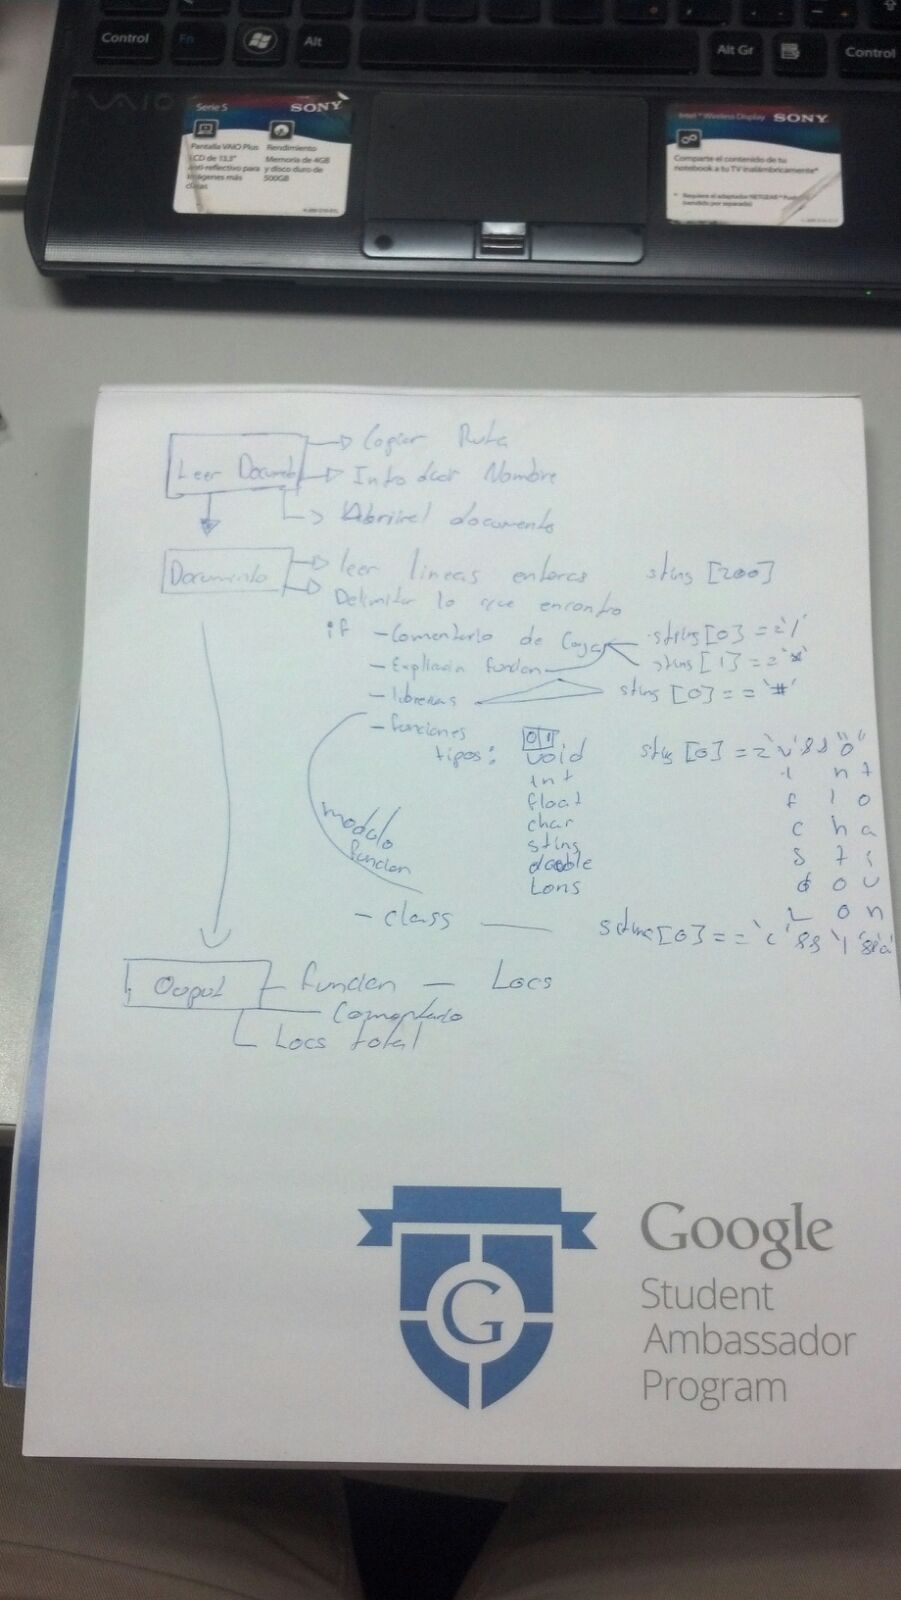 Control Fn Alt Alt Gr Control
VAIO
Serie S SONY
Pantalla VAIO Plus Rendimiento
LCD de 13,3" Memoria de 4GB
anti-reflectivo para y disco duro de
imágenes más 500GB
Intel™ Wireless Display SONY
Comparte el contenido de tu
notebook a tu TV inalámbricamente*
* Requiere el adaptador NETGEAR™
(vendido por separado)
Copiar Ruta
Leer Document Introducir Nombre
Abrir el documento
Documento leer lineas enteras sting [200]
Delimitar lo que encontro
if - Comentario de string[0] == '/'
- Explicacion funcion sting[1] == '*'
- librerias sting[0] == '#'
- funciones 0 1
tipos: void sting[0] == 'v' && "o"
int i n t
float f l o
char c h a
sting s t r
double d o u
Lons L o n
modulo
funcion
- class string[0] == 'c' && 'l' && 'a'
Ouput funcion - Locs
Comentario
Locs total
G
Google
Student
Ambassador
Program